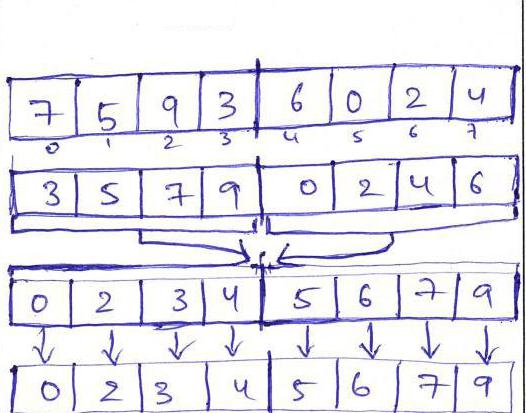 7 5 9 3 6 0 2 4
0 1 2 3 4 5 6 7
3 5 7 9 0 2 4 6
0 2 3 4 5 6 7 9
0 2 3 4 5 6 7 9